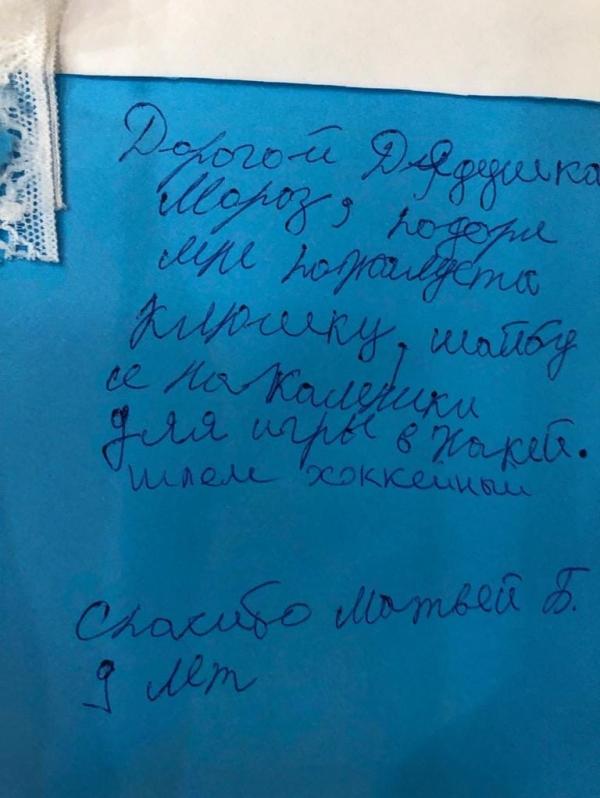 Дорогой Дядушка
Мороз, подари
мне пожалуста
клюшку, шайбу
и накаленики
для игры в хакей.
шлем хоккейный
Спасибо Матвей Б.
9 лет